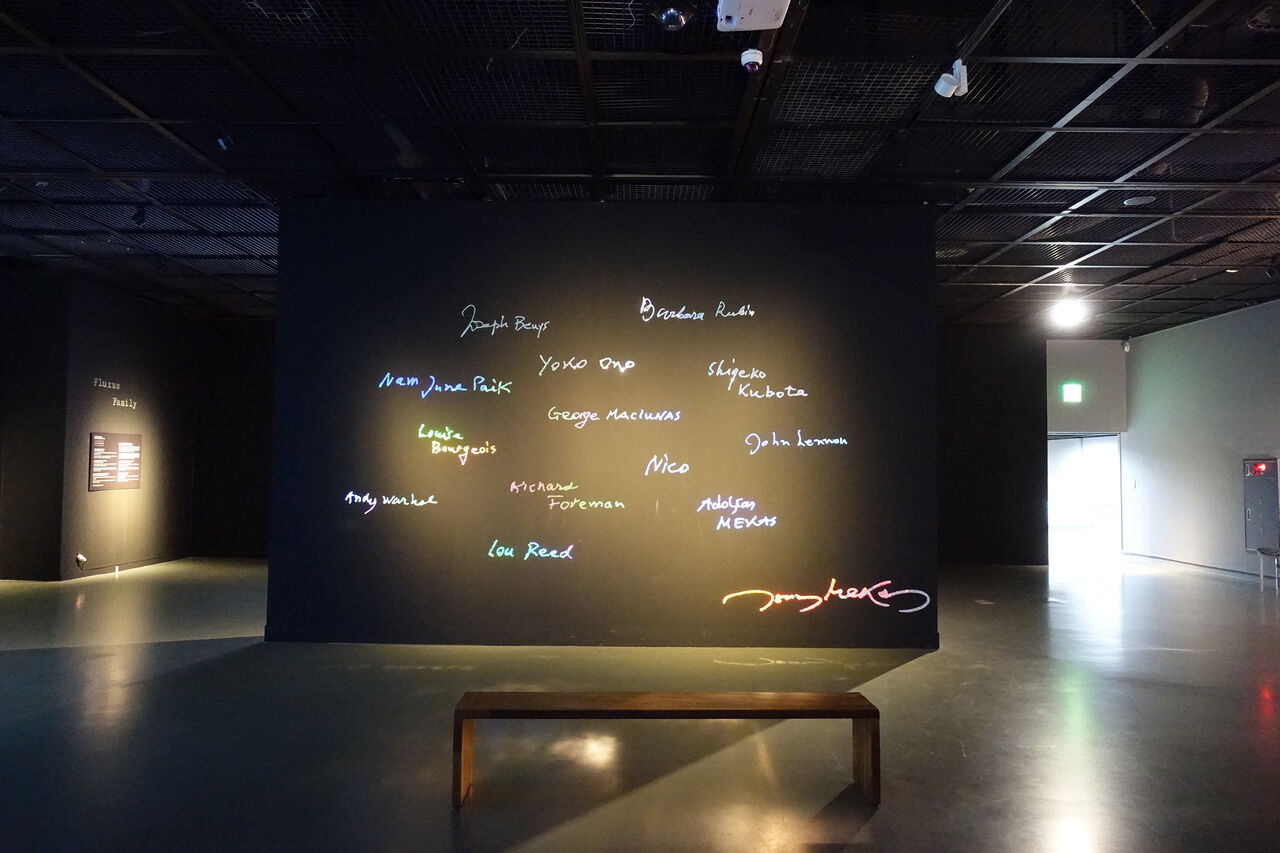 Fluxus
Family
Joseph Beuys
Barbara Rubin
Yoko Ono
Shigeko
Kubota
Nam June Paik
George MACIUNAS
Louise
Bourgeois
John Lennon
Nico
Richard
Foreman
Andy Warhol
Adolfas
MEKAS
Lou Reed
Jonas Mekas